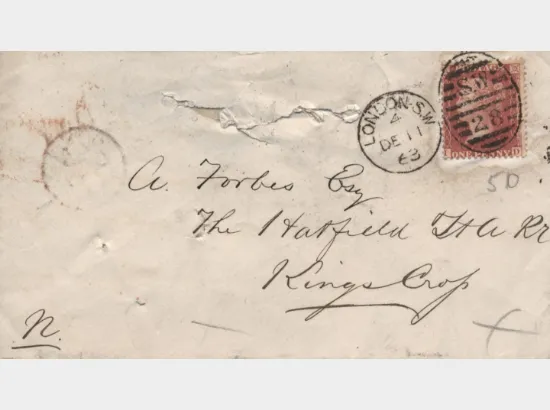 LONDON·S.W
4
DE 11
69
S.W
28
5D
A. Forbes Esq
The Hatfield St A Rr
Kings Crofs
N.